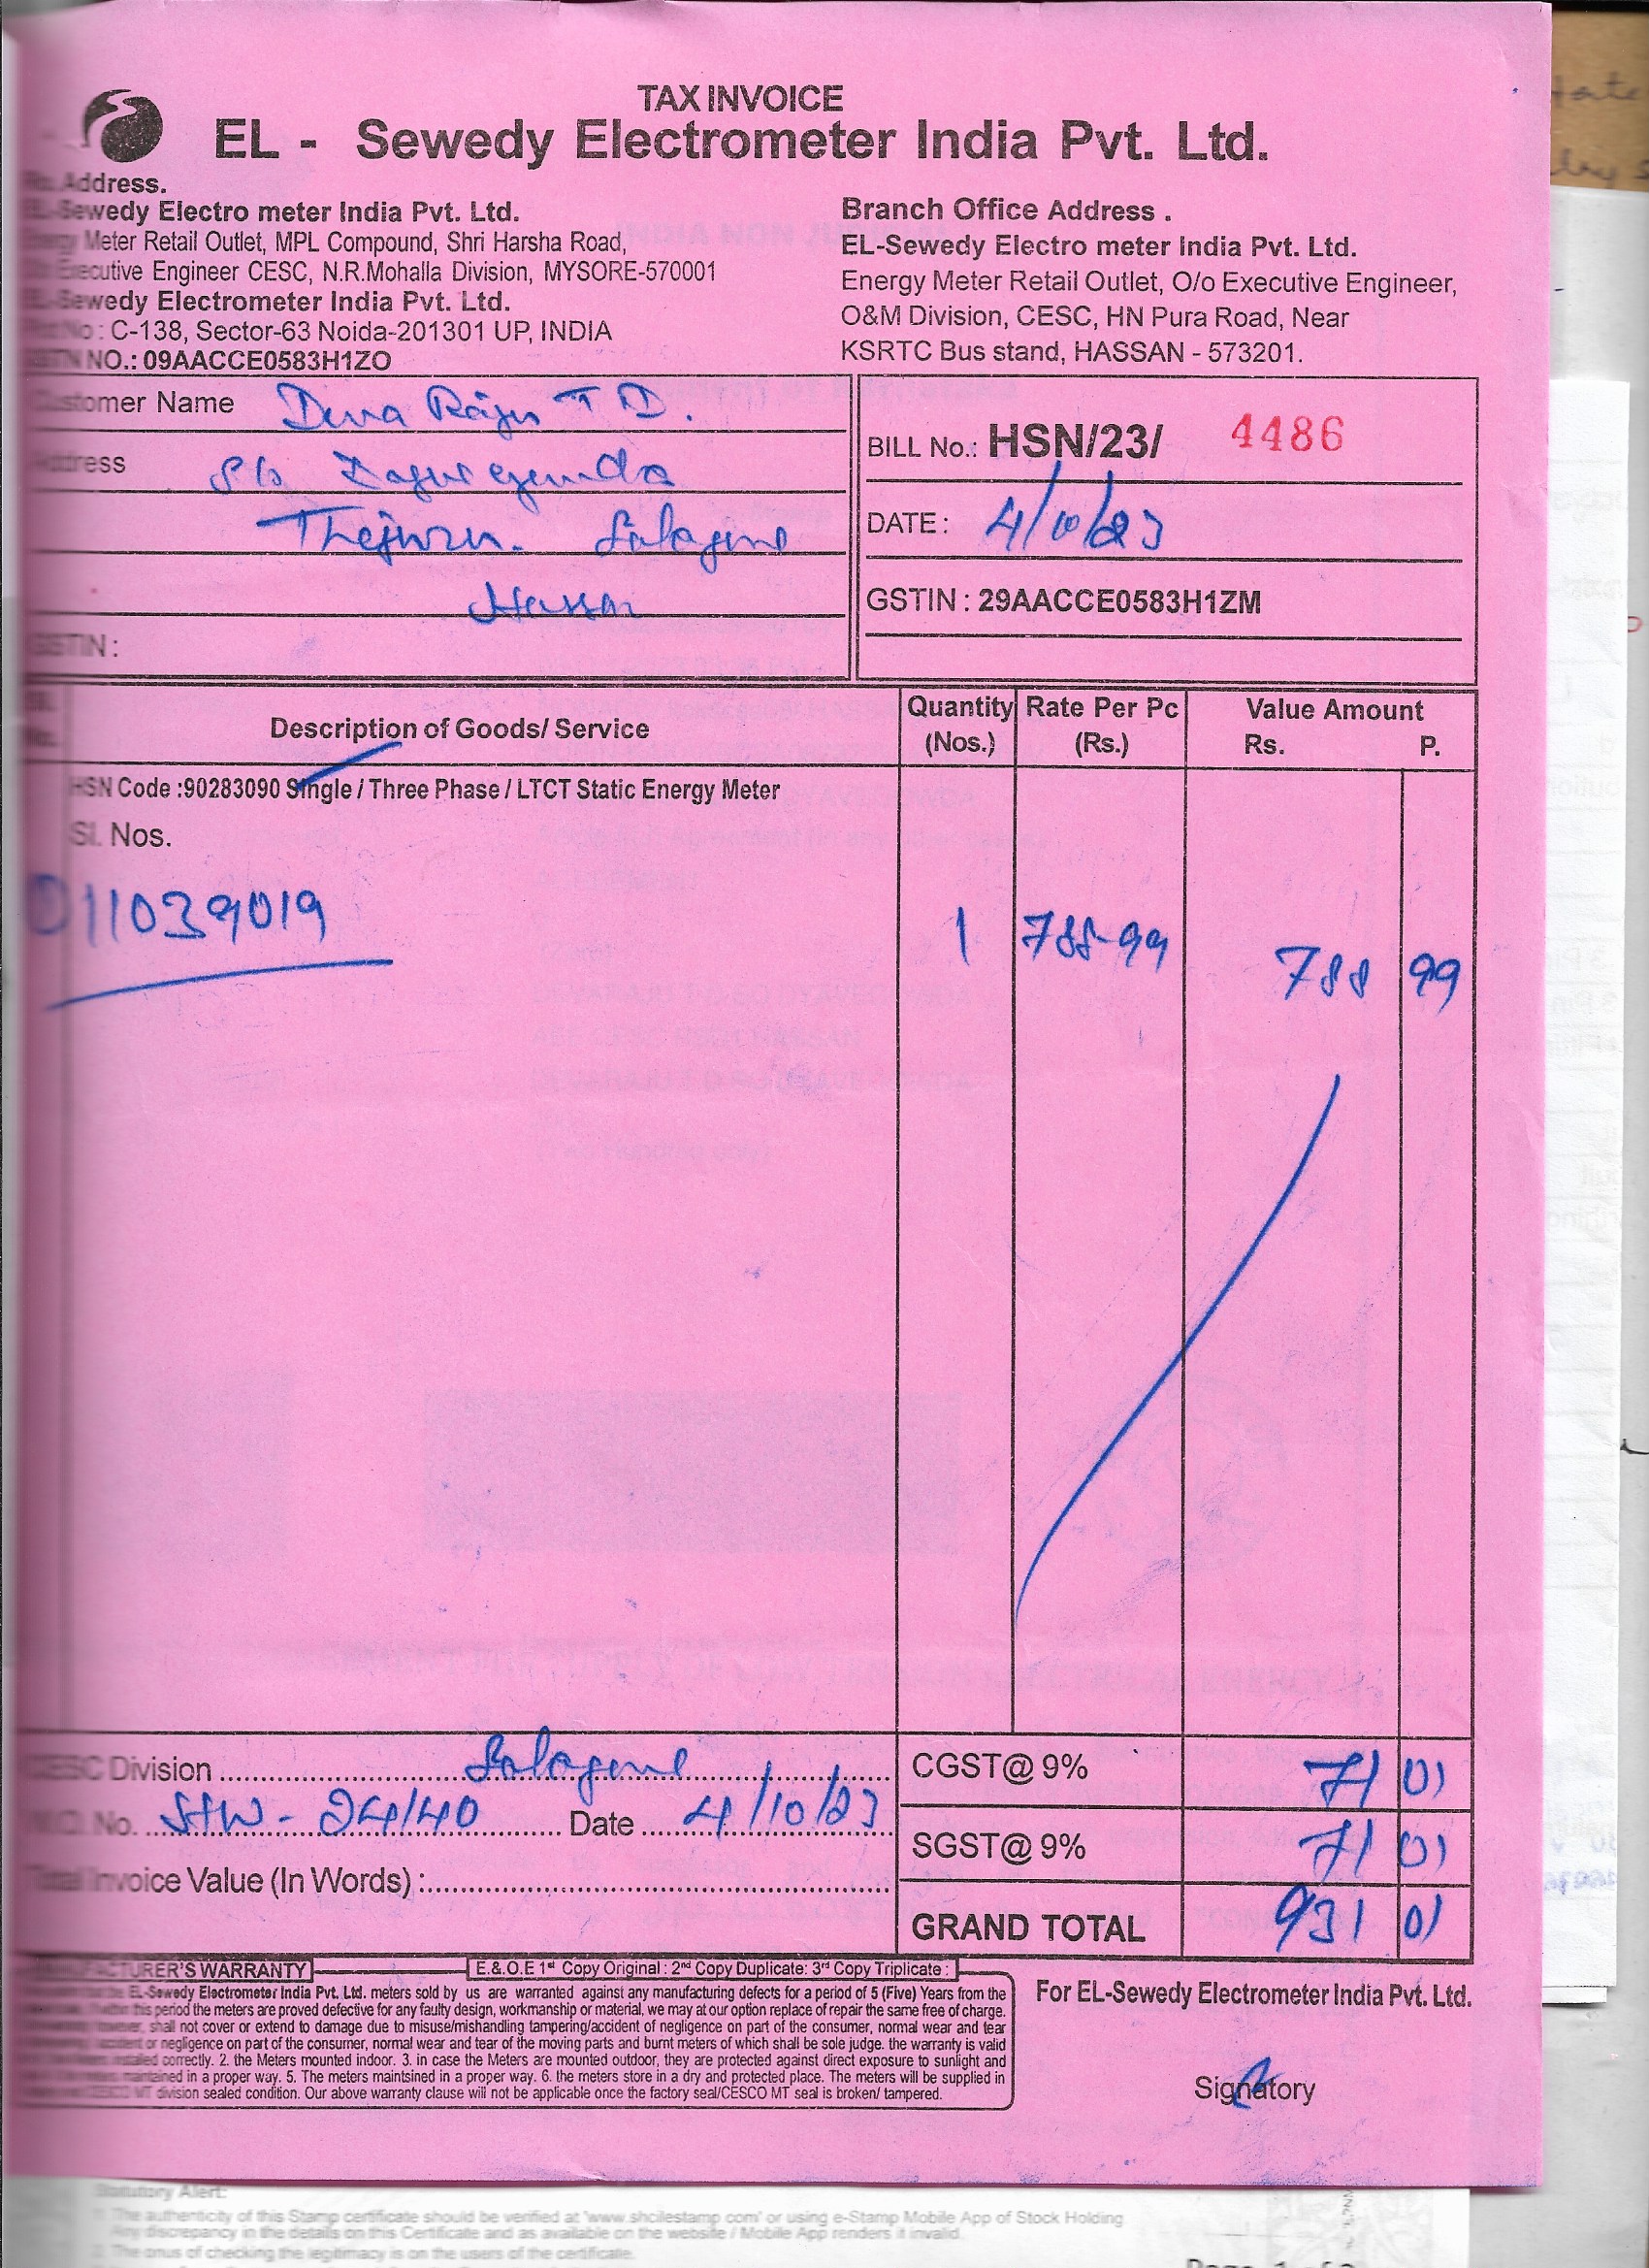 TAX INVOICE
EL - Sewedy Electrometer India Pvt. Ltd.
Address.
EL-Sewedy Electro meter India Pvt. Ltd.
Energy Meter Retail Outlet, MPL Compound, Shri Harsha Road,
Executive Engineer CESC, N.R.Mohalla Division, MYSORE-570001
EL-Sewedy Electrometer India Pvt. Ltd.
No : C-138, Sector-63 Noida-201301 UP, INDIA
GSTN NO.: 09AACCE0583H1ZO
Branch Office Address .
EL-Sewedy Electro meter India Pvt. Ltd.
Energy Meter Retail Outlet, O/o Executive Engineer,
O&M Division, CESC, HN Pura Road, Near
KSRTC Bus stand, HASSAN - 573201.
Customer Name Deva Raju T D.
Address S/o
Thejuru. Salagame
Hassan
GSTIN :
BILL No.: HSN/23/ 4486
DATE : 4/10/23
GSTIN : 29AACCE0583H1ZM
Sl. No. Description of Goods/ Service Quantity (Nos.) Rate Per Pc (Rs.) Value Amount Rs. P.
HSN Code :90283090 Single / Three Phase / LTCT Static Energy Meter
Sl. Nos.
11039019 1 788-99 788 99
CESC Division Salagame
No. 24/40 Date 4/10/23
Total Invoice Value (In Words) :
CGST@ 9% 71 01
SGST@ 9% 71 01
GRAND TOTAL 931 01
MANUFACTURER'S WARRANTY E.& O.E 1st Copy Original : 2nd Copy Duplicate: 3rd Copy Triplicate :
EL-Sewedy Electrometer India Pvt. Ltd. meters sold by us are warranted against any manufacturing defects for a period of 5 (Five) Years from the
this period the meters are proved defective for any faulty design, workmanship or material, we may at our option replace of repair the same free of charge.
however, shall not cover or extend to damage due to misuse/mishandling tampering/accident of negligence on part of the consumer, normal wear and tear
accident or negligence on part of the consumer, normal wear and tear of the moving parts and burnt meters of which shall be sole judge. the warranty is valid
installed correctly. 2. the Meters mounted indoor. 3. in case the Meters are mounted outdoor, they are protected against direct exposure to sunlight and
maintained in a proper way. 5. The meters maintsined in a proper way. 6. the meters store in a dry and protected place. The meters will be supplied in
CESCO MT division sealed condition. Our above warranty clause will not be applicable once the factory seal/CESCO MT seal is broken/ tampered.
For EL-Sewedy Electrometer India Pvt. Ltd.
Signatory
Statutory Alert:
The authenticity of this Stamp certificate should be verified at 'www.shcilestamp.com' or using e-Stamp Mobile App of Stock Holding
Any discrepancy in the details on this Certificate and as available on the website / Mobile App renders it invalid.
The onus of checking the legitimacy is on the users of the certificate.